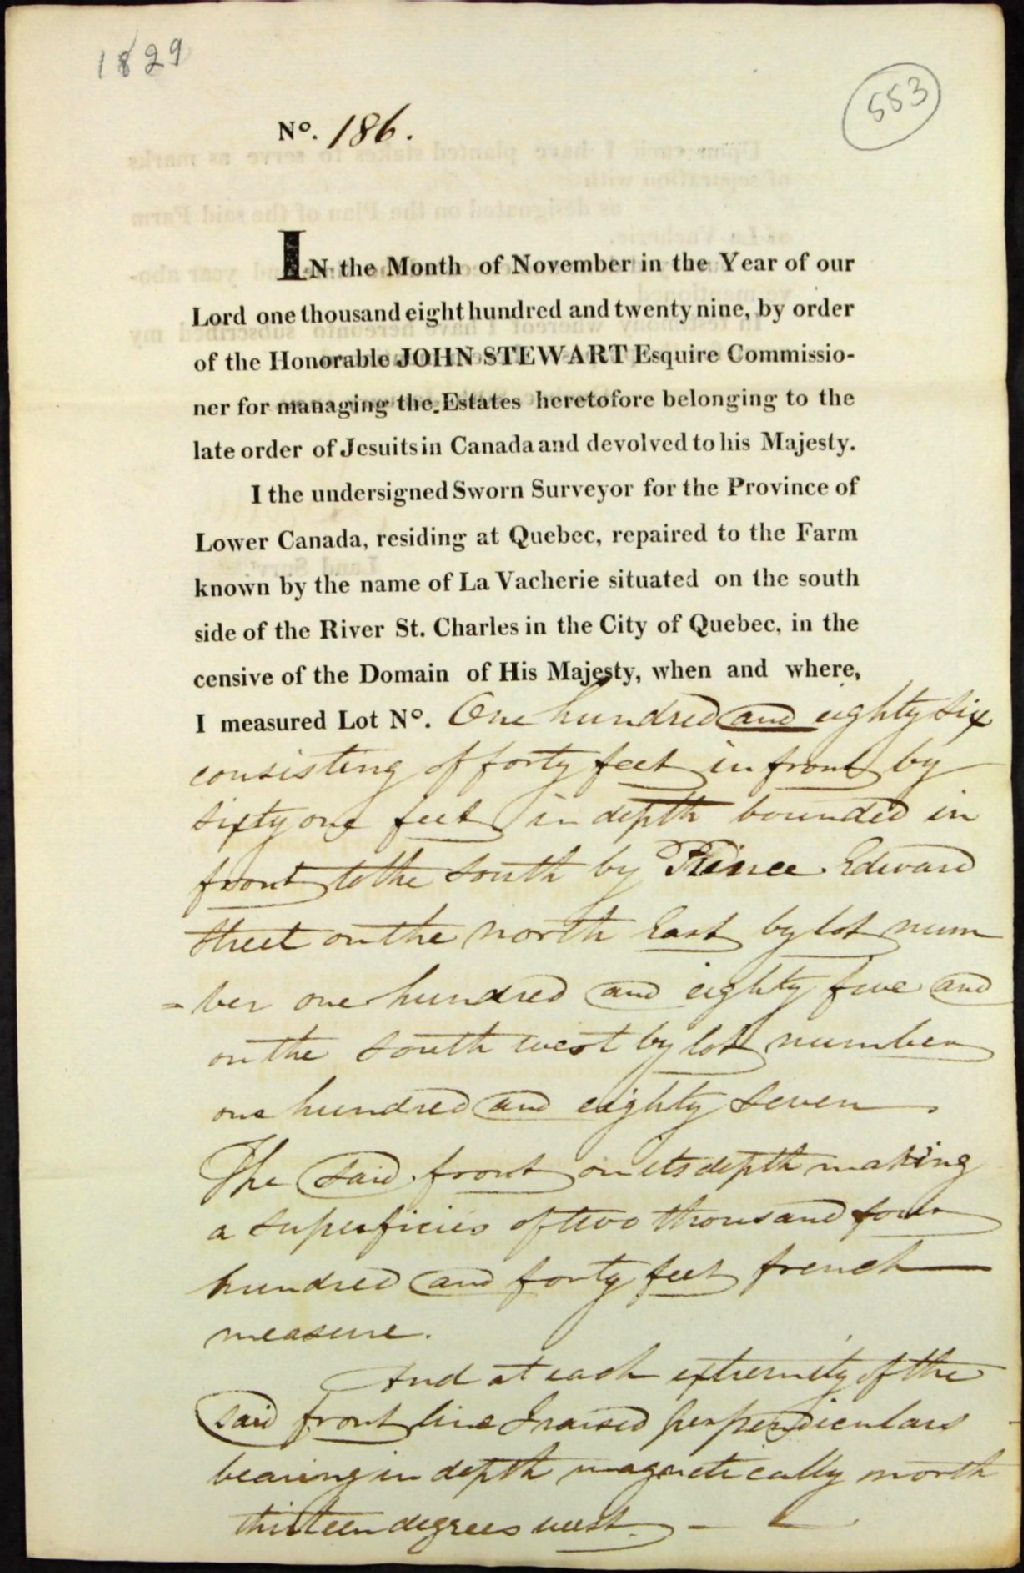 1829
553
No. 186.
IN the Month of November in the Year of our
Lord one thousand eight hundred and twenty nine, by order
of the Honorable JOHN STEWART Esquire Commissio-
ner for managing the Estates heretofore belonging to the
late order of Jesuits in Canada and devolved to his Majesty.
I the undersigned Sworn Surveyor for the Province of
Lower Canada, residing at Quebec, repaired to the Farm
known by the name of La Vacherie situated on the south
side of the River St. Charles in the City of Quebec, in the
censive of the Domain of His Majesty, when and where,
I measured Lot No. One hundred and eighty six
consisting of forty feet in front by
sixty one feet in depth bounded in
front to the south by Prince Edward
street on the north East by lot num
=ber one hundred and eighty five and
on the south west by lot number
one hundred and eighty seven.
The said front on its depth making
a superficies of two thousand four
hundred and forty feet french
measure.
And at each extremity of the
said front line I raised perpendiculars
bearing in depth magnetically north
thirteen degrees west. —